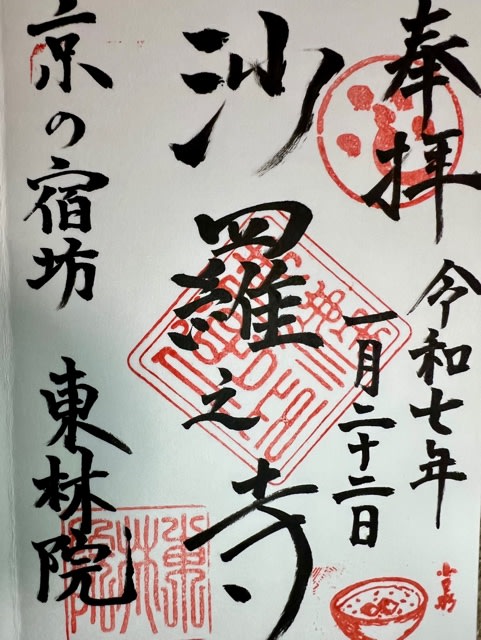 奉拝
令和七年
一月二十二日
沙羅之寺
京の宿坊
東林院
東林院